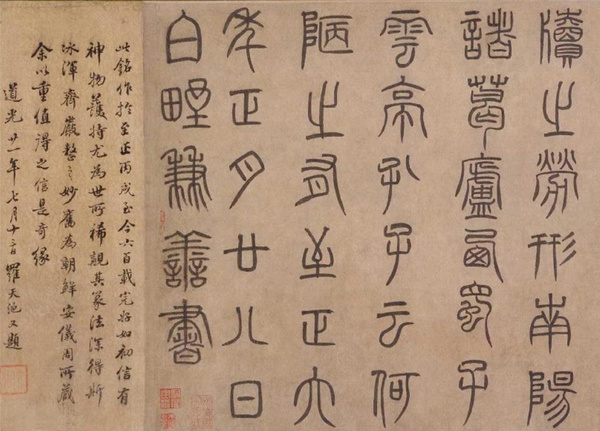 牘之勞形南陽
諸葛廬西蜀子
雲亭孔子云何
陋之有至正六
年正月廿八日
白野兼善書
此銘作於至正丙戌至今六百載完好如初信有
神物護持尤為世所稀覯其篆法深得斯
冰渾齊嚴整之妙舊為朝鮮安儀周所藏
余以重值得之信是奇緣
道光廿一年七月十三日羅天池又題